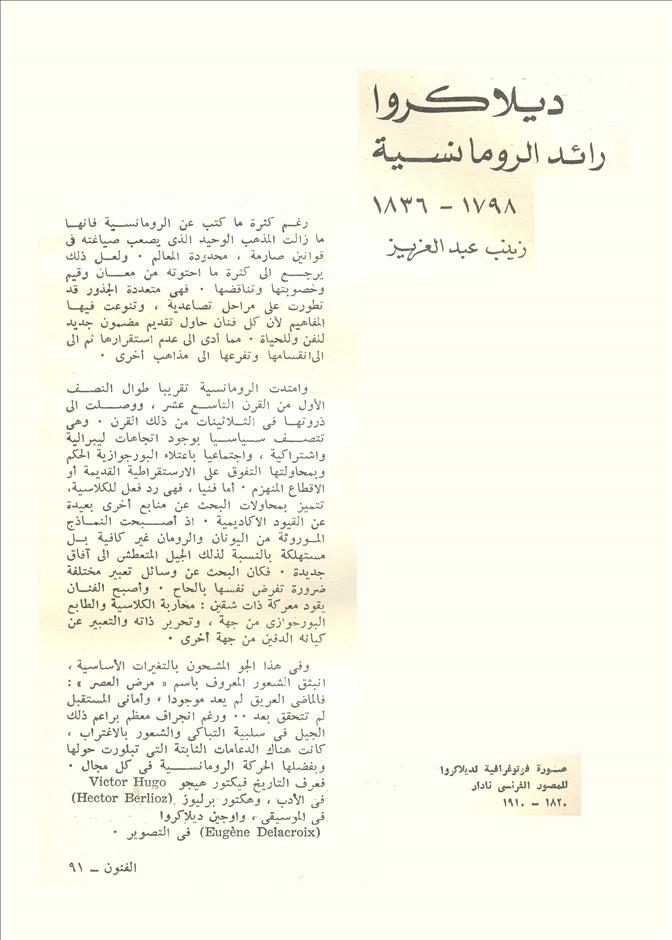 ديلاكروا
رائد الرومانسية
١٧٩٨ - ١٨٣٦
زينب عبد العزيز
رغم كثرة ما كتب عن الرومانسية فانها
ما زالت المذهب الوحيد الذى يصعب صياغته فى
قوانين صارمة ، محدودة المعالم ٠ ولعل ذلك
يرجع الى كثرة ما احتوته من معان وقيم
وخصوبتها وتناقضها ٠ فهى متعددة الجذور قد
تطورت على مراحل تصاعدية ، وتنوعت فيها
المفاهيم لأن كل فنان حاول تقديم مضمون جديد
للفن وللحياة ٠ مما أدى الى عدم استقرارها ثم الى
الى انقسامها وتفرعها الى مذاهب أخرى ٠
وامتدت الرومانسية تقريبا طوال النصف
الأول من القرن التاسع عشر ، ووصلت الى
ذروتها فى الثلاثينات من ذلك القرن ٠ وهى
تتصف سياسيا بوجود اتجاهات ليبرالية
واشتراكية ، واجتماعيا باعتلاء البورجوازية الحكم
وبمحاولتها التفوق على الارستقراطية القديمة أو
الاقطاع المنهزم ٠ أما فنيا ، فهى رد فعل للكلاسية،
تتميز بمحاولات البحث عن منابع أخرى بعيدة
عن القيود الاكاديمية ٠ اذ أصبحت النماذج
الموروثة من اليونان والرومان غير كافية بل
مستهلكة بالنسبة لذلك الجيل المتعطش الى آفاق
جديدة ٠ فكان البحث عن وسائل تعبير مختلفة
ضرورة تفرض نفسها بالحاح ٠ وأصبح الفنان
يقود معركة ذات شقين : محاربة الكلاسية والطابع
البورجوازى من جهة ، وتحرير ذاته والتعبير عن
كيانه الدفين من جهة أخرى ٠
وفى هذا الجو المشحون بالتغيرات الأساسية ،
انبثق الشعور المعروف باسم « مرض العصر » :
فالماضى العريق لم يعد موجودا ، وأمانى المستقبل
لم تتحقق بعد ٠٠ ورغم انجراف معظم براعم ذلك
الجيل فى سلبية التباكى والشعور بالاغتراب ،
كانت هناك الدعامات الثابتة التى تبلورت حولها
وبفضلها الحركة الرومانسية فى كل مجال ٠
فعرف التاريخ فيكتور هيجو Victor Hugo
فى الأدب ، وهكتور برليوز (Hector Berlioz)
فى الموسيقى ، واوجين ديلاكروا
(Eugène Delacroix) فى التصوير ٠
صورة فوتوغرافية لديلاكروا
للمصور الفرنسى نادار
١٨٢٠ - ١٩١٠
الفنون - ٩١